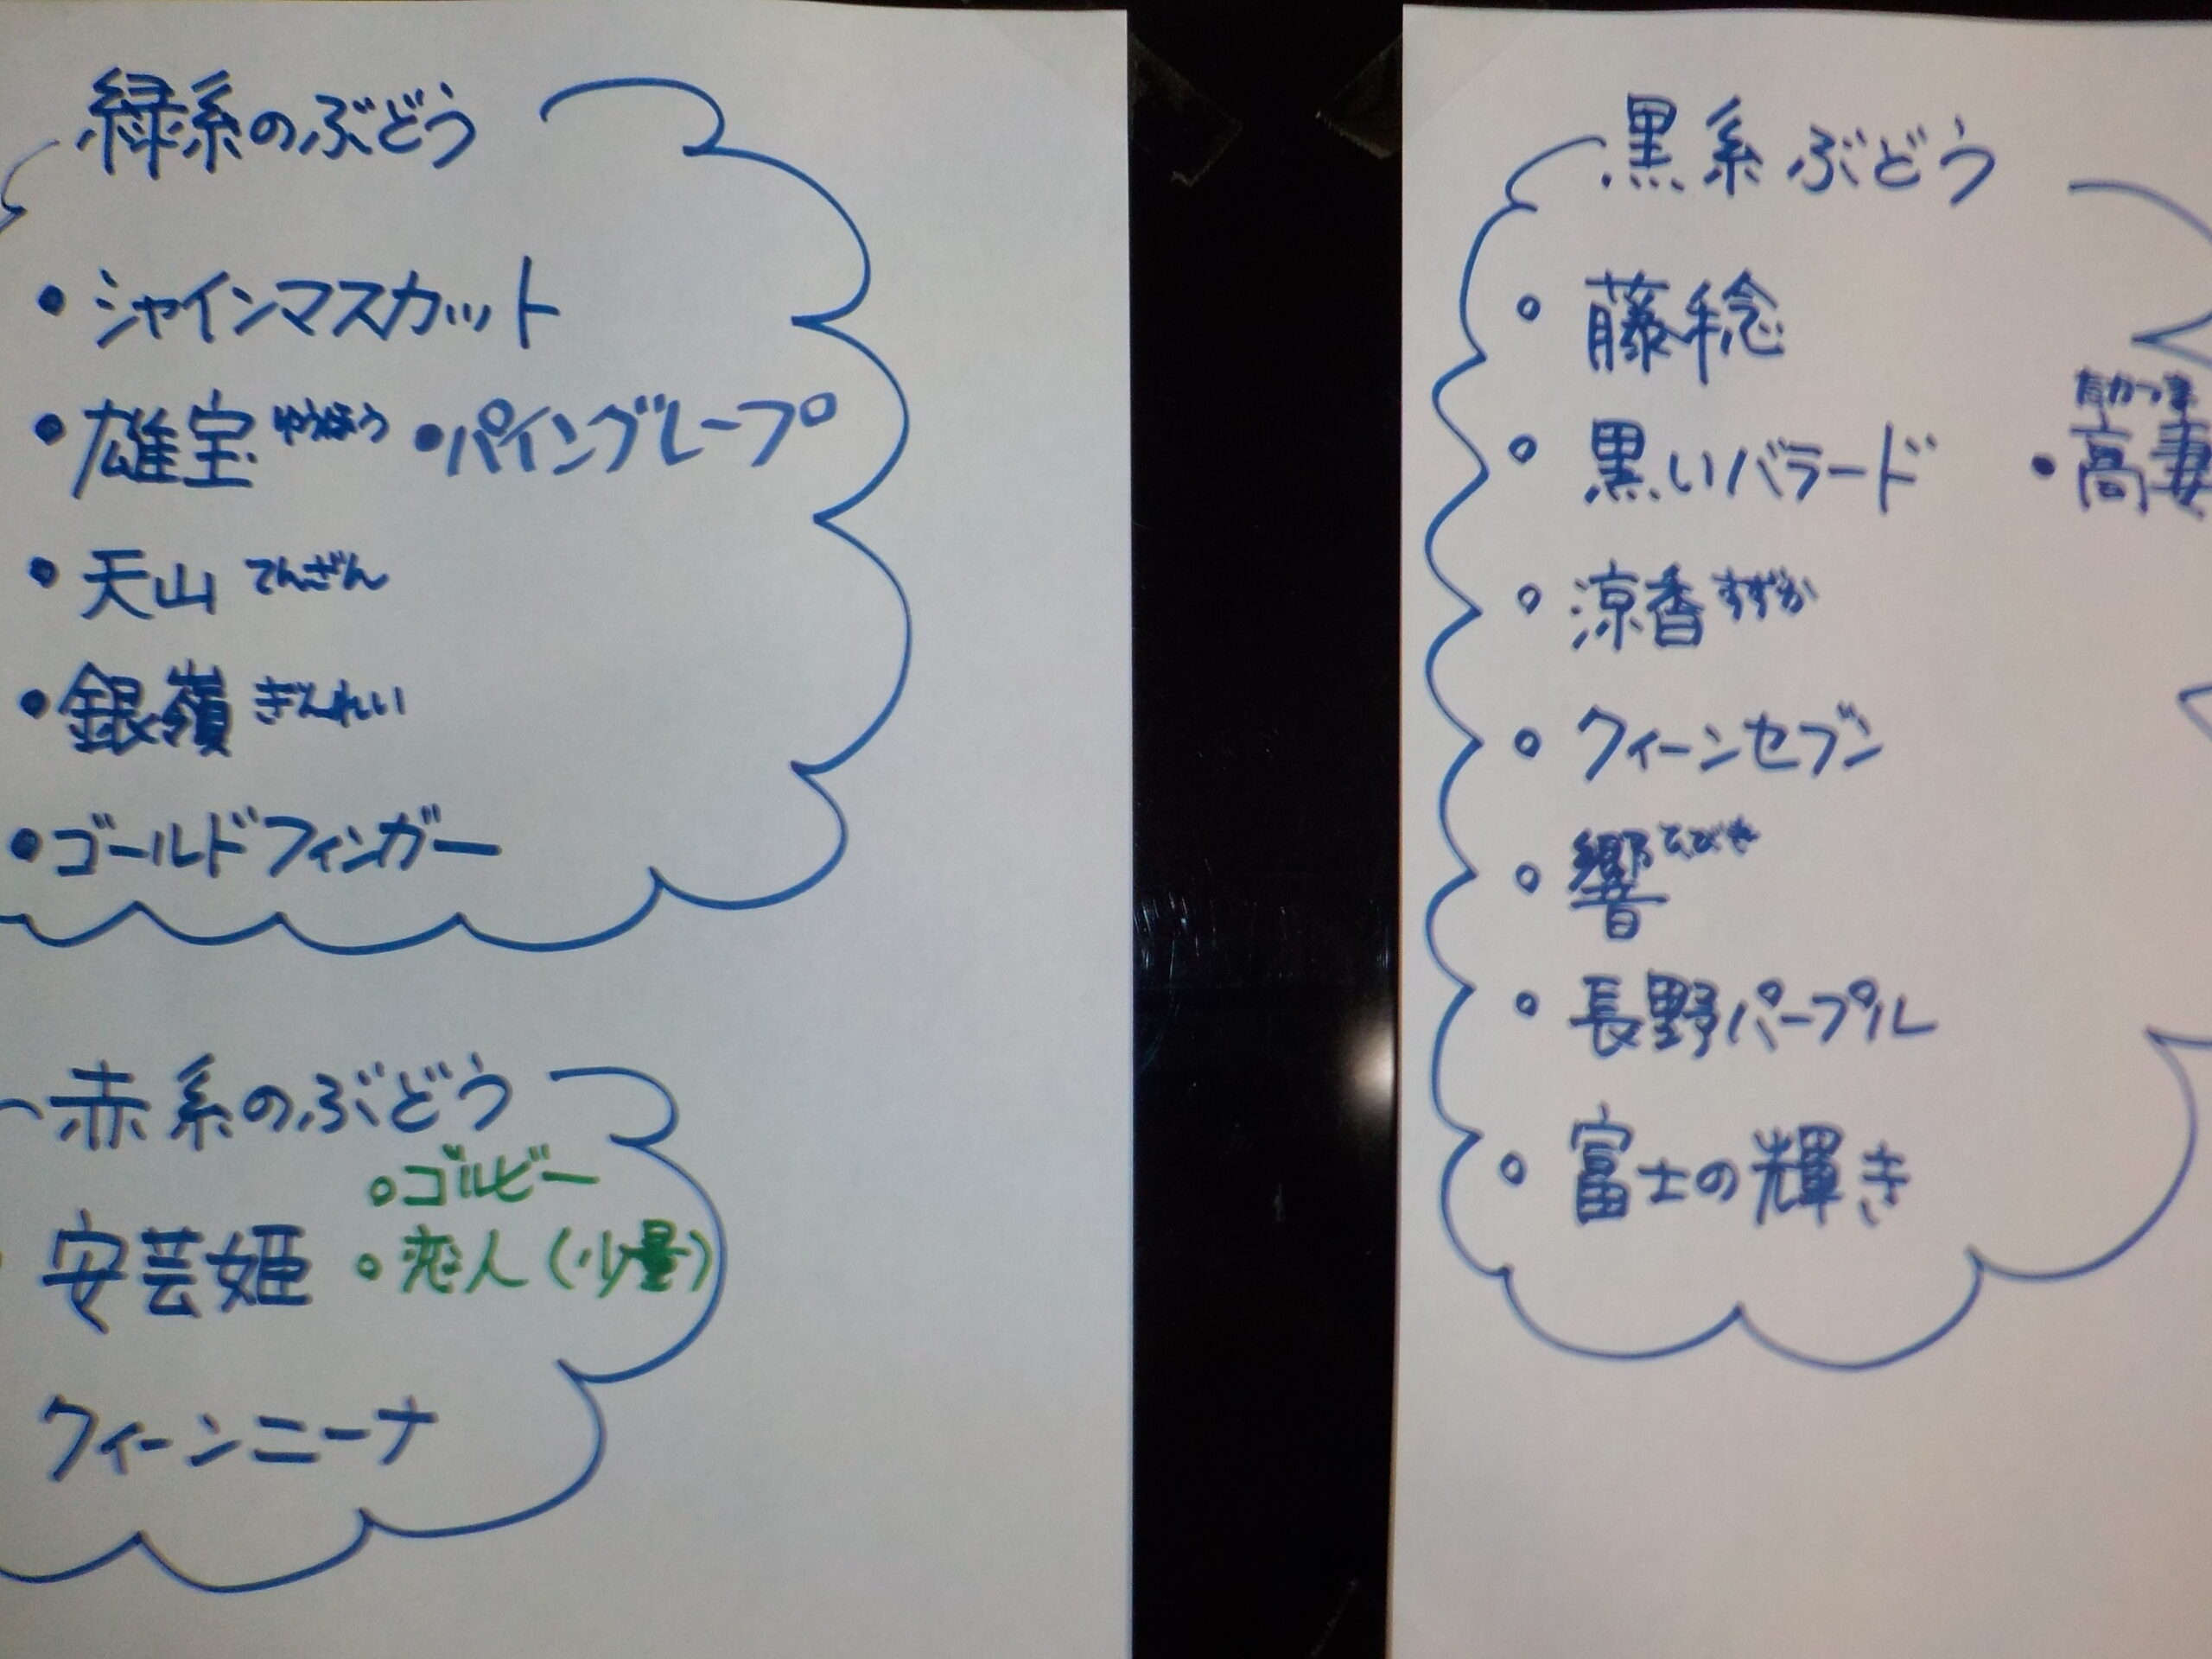 緑系のぶどう
・シャインマスカット
・雄宝 ゆうほう ・パイングレープ
・天山 てんざん
・銀嶺 ぎんれい
・ゴールドフィンガー
赤系のぶどう
・ゴルビー
安芸姫 ・恋人(少量)
クィーンニーナ
黒系ぶどう
・藤稔
たかつま
・黒いバラード ・高妻
・涼香 すずか
・クィーンセブン
・響 ひびき
・長野パープル
・富士の輝き